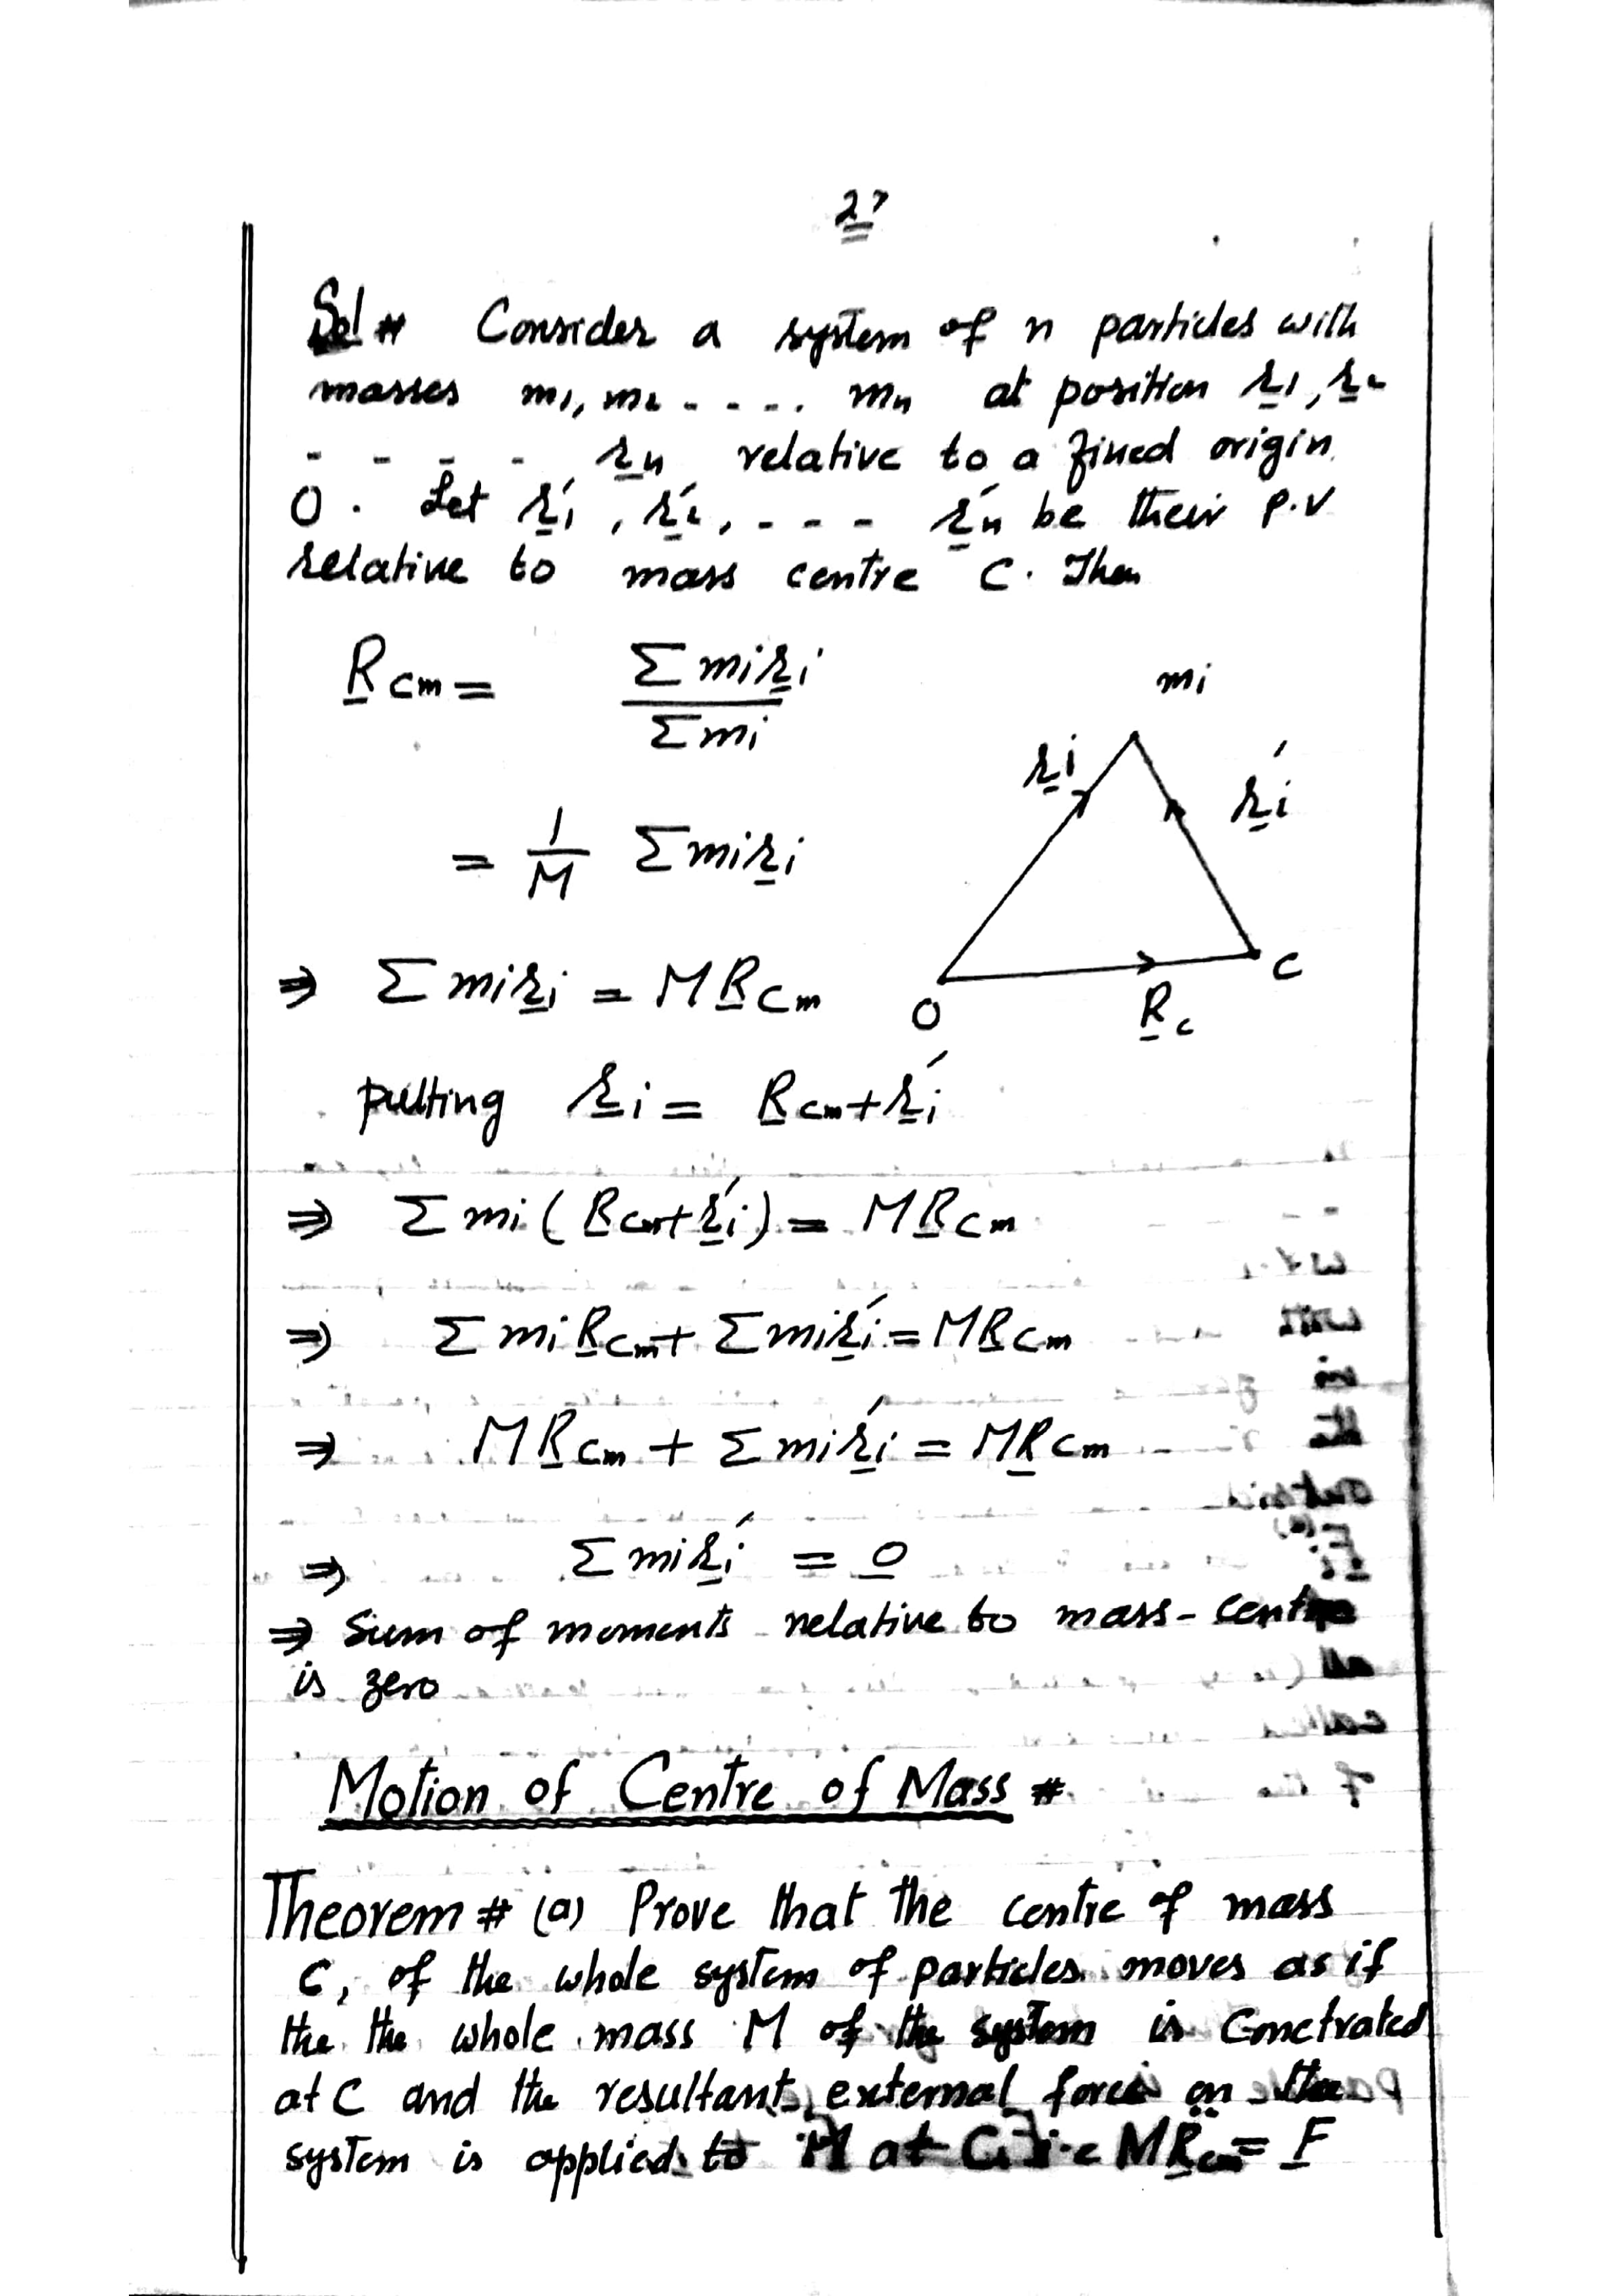 Sol # Consider a system of n particles with
masses m1, m2 - - - - . mn at position r1, r2
- - - - - rn relative to a fixed origin
O. Let r'1, r'2, - - - - r'n be their P.V
relative to mass centre C. Then
Rcm = Σmiri / Σmi
mi
ri
r'i
= 1/M Σmiri
⇒ Σmiri = MRcm
C
O
Rc
putting ri = Rcm + r'i
⇒ Σmi(Rcm + r'i) = MRcm
⇒ ΣmiRcm + Σmir'i = MRcm
⇒ MRcm + Σmir'i = MRcm
⇒ Σmir'i = 0
⇒ Sum of moments relative to mass-centre
is zero
Motion of Centre of Mass #
Theorem # (a) Prove that the centre of mass
C, of the whole system of particles moves as if
the the whole mass M of the system is Conctrated
at C and the resultant external force on the
system is applied to M at C i.e MR̈cm = F